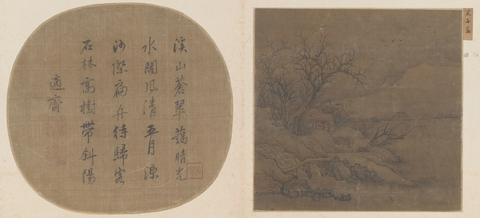 溪山蒼翠藹晴光
水闊風清五月涼
沙際扁舟待歸客
石林高樹帶斜陽
適齋